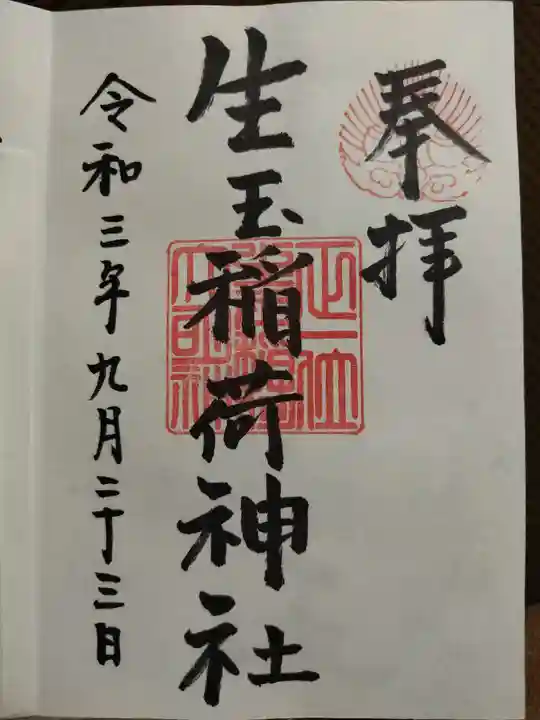 奉拝
生玉稲荷神社
正一位
令和三年九月二十三日